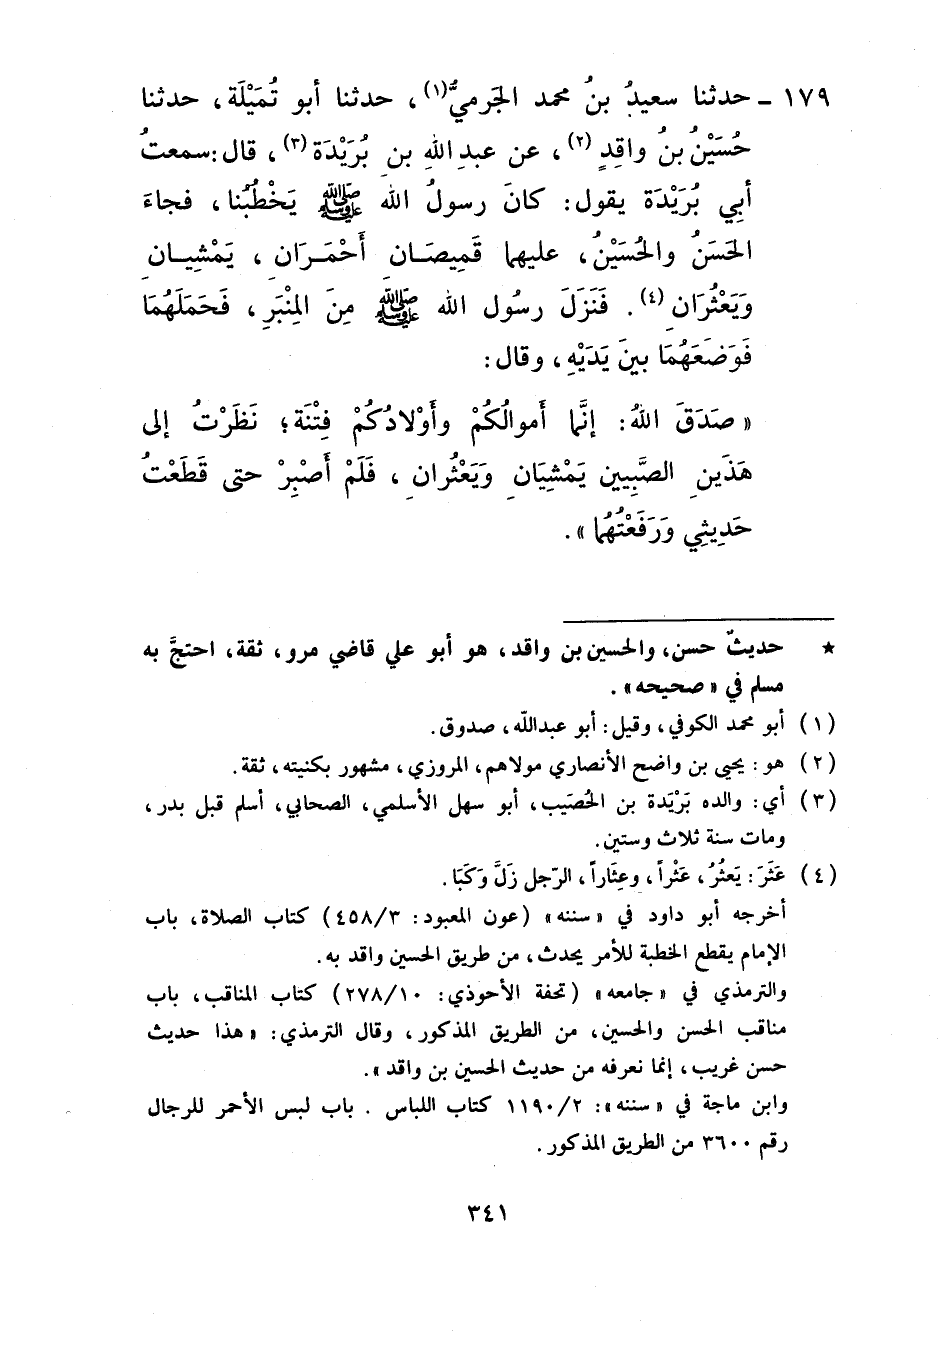 ١٧٩ ـ حدثنا سعيدُ بنُ محمد الجَرميُّ(١) ، حدثنا أبو تُمَيْلَة ، حدثنا
حُسَيْنُ بنُ واقِدٍ(٢) ، عن عبدِ اللهِ بنِ بُرَيْدَة(٣) ، قال : سمعتُ
أبي بُرَيْدَة يقول : كانَ رسولُ الله ﷺ يَخْطُبُنا ، فجاءَ
الحَسَنُ والحُسَيْنُ ، عليهما قَمِيصَانِ أَحْمَرَانِ ، يَمْشِيانِ
وَيَعْثُرَانِ(٤) . فَنَزَلَ رسُول الله ﷺ مِنَ المِنْبَرِ ، فَحَمَلَهُمَا
فَوَضَعَهُمَا بينَ يَدَيْهِ ، وقال :
« صَدَقَ اللهُ : إنَّما أموالُكُمْ وأَوْلادُكُمْ فِتْنَة ؛ نَظَرْتُ إلى
هَذَينِ الصَّبِيينِ يَمْشِيَانِ وَيَعْثُرانِ ، فَلَمْ أَصْبِرْ حتى قَطَعْتُ
حَدِيثِي وَرَفَعْتُهُما » .
★ حديثٌ حسن ، والحسين بن واقد ، هو أبو علي قاضي مرو ، ثقة ، احتجَّ به
مسلم في « صحيحه » .
(١) أبو محمد الكوفي ، وقيل : أبو عبدالله ، صدوق .
(٢) هو : يحيى بن واضح الأنصاري مولاهم ، المروزي ، مشهور بكنيته ، ثقة .
(٣) أي : والده بُرَيْدة بن الحُصَيب ، أبو سهل الأسلمي ، الصحابي ، أسلم قبل بدر ،
ومات سنة ثلاث وستين .
(٤) عَثَرَ : يَعثُرُ ، عَثْراً ، وعِثَاراً ، الرّجل زَلَّ وَكَبَا .
أخرجه أبو داود في « سننه » (عون المعبود : ٤٥٨/٣) كتاب الصلاة ، باب
الإمام يقطع الخطبة للأمر يحدث ، من طريق الحسين واقد به .
والترمذي في « جامعه » (تحفة الأحوذي : ٢٧٨/١٠) كتاب المناقب ، باب
مناقب الحسن والحسين ، من الطريق المذكور ، وقال الترمذي : « هذا حديث
حسن غريب ، إنما نعرفه من حديث الحسين بن واقد » .
وابن ماجة في « سننه » : ١١٩٠/٢ كتاب اللباس . باب لبس الأحمر للرجال
رقم ٣٦٠٠ من الطريق المذكور .
٣٤١